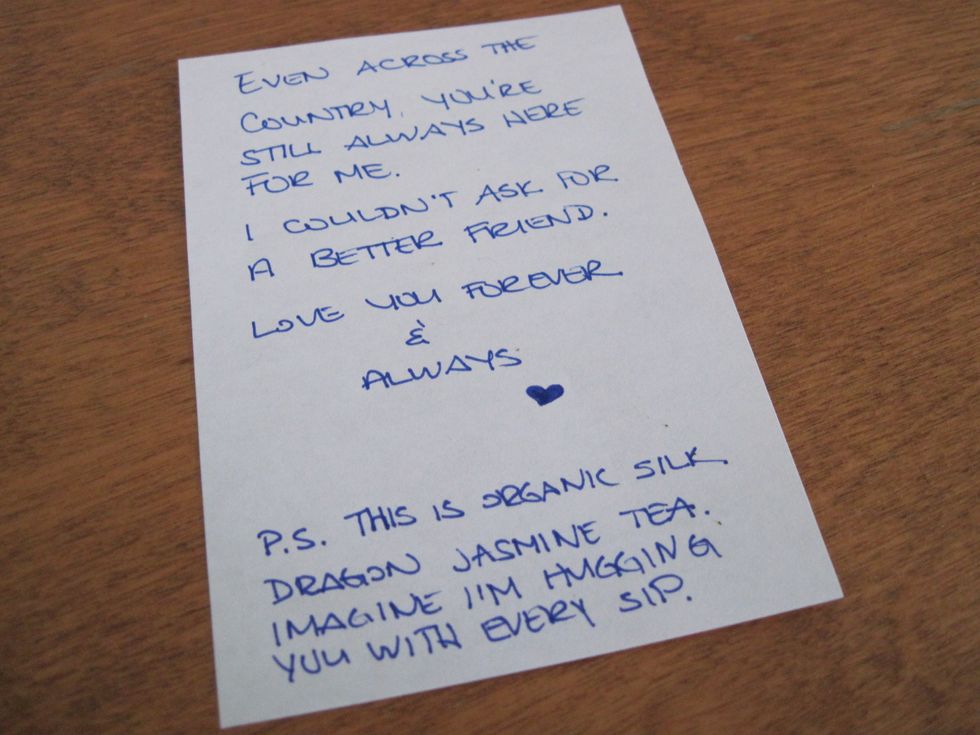 EVEN ACROSS THE
COUNTRY, YOU'RE
STILL ALWAYS HERE
FOR ME.
I COULDN'T ASK FOR
A BETTER FRIEND.
LOVE YOU FOREVER
&
ALWAYS
P.S. THIS IS ORGANIC SILK
DRAGON JASMINE TEA.
IMAGINE I'M HUGGING
YOU WITH EVERY SIP.